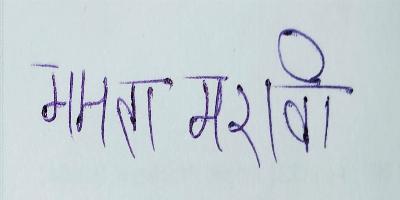 ममता मरावी